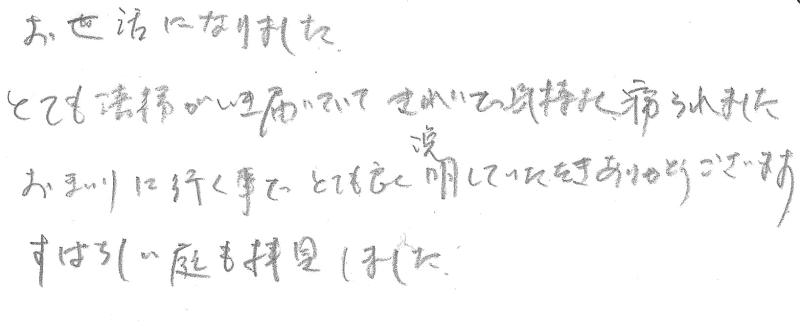 お世話になりました。
とても清掃がいき届いていて きれいで気持よく 痛られました
おまいりに行く事で、とても良く 説明していただきありがとうございます
すばらしい庭も拝見しました。